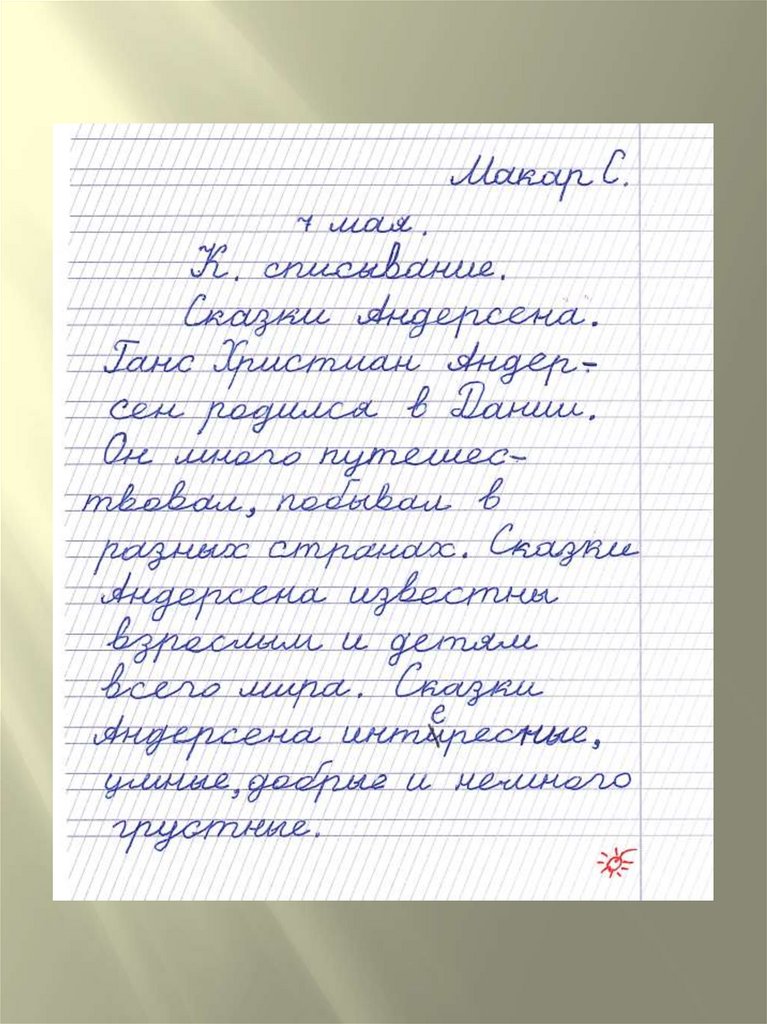 Макар С.
7 мая.
К. списывание.
Сказки Андерсена.
Ганс Христиан Андер-
сен родился в Дании.
Он много путешес-
твовал, побывал в
разных странах. Сказки
Андерсена известны
взрослым и детям
всего мира. Сказки
Андерсена интересные,
умные, добрые и немного
грустные.